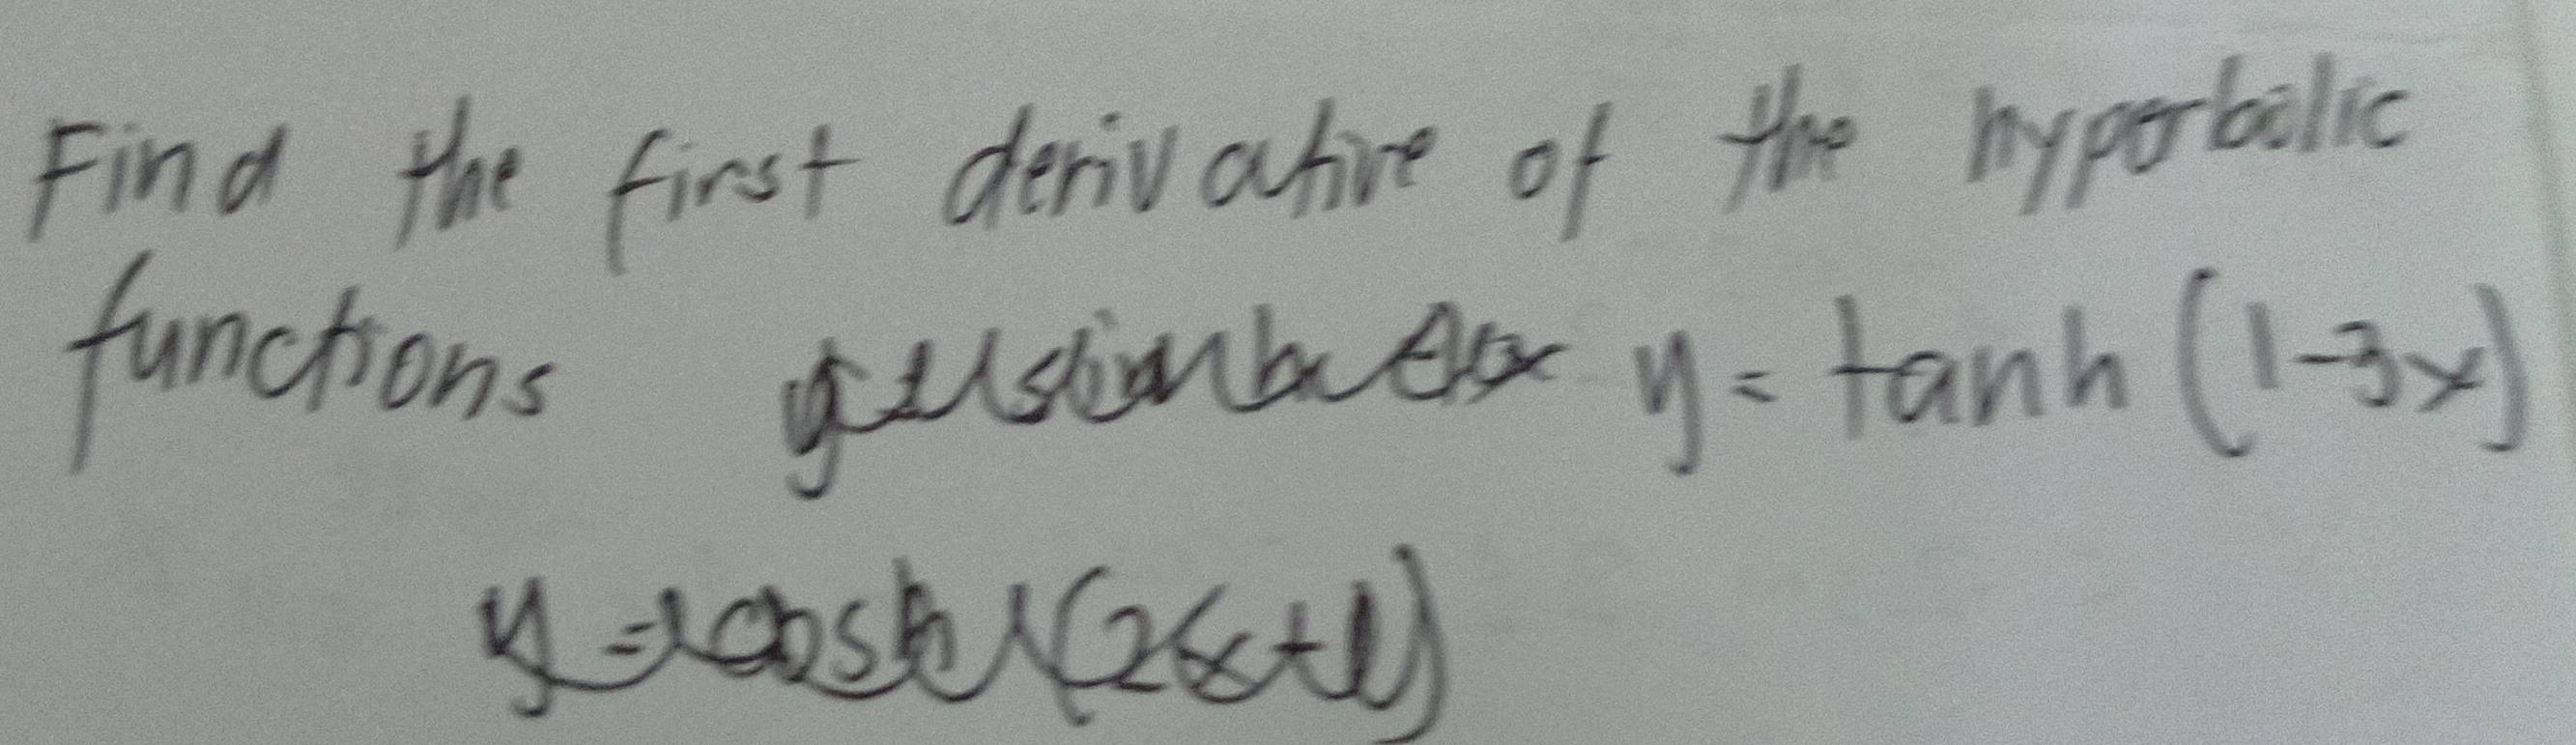 Find the first derivative of the hyperbolic
functions y = tanh (1-3x)
y = cosh (2x+1)